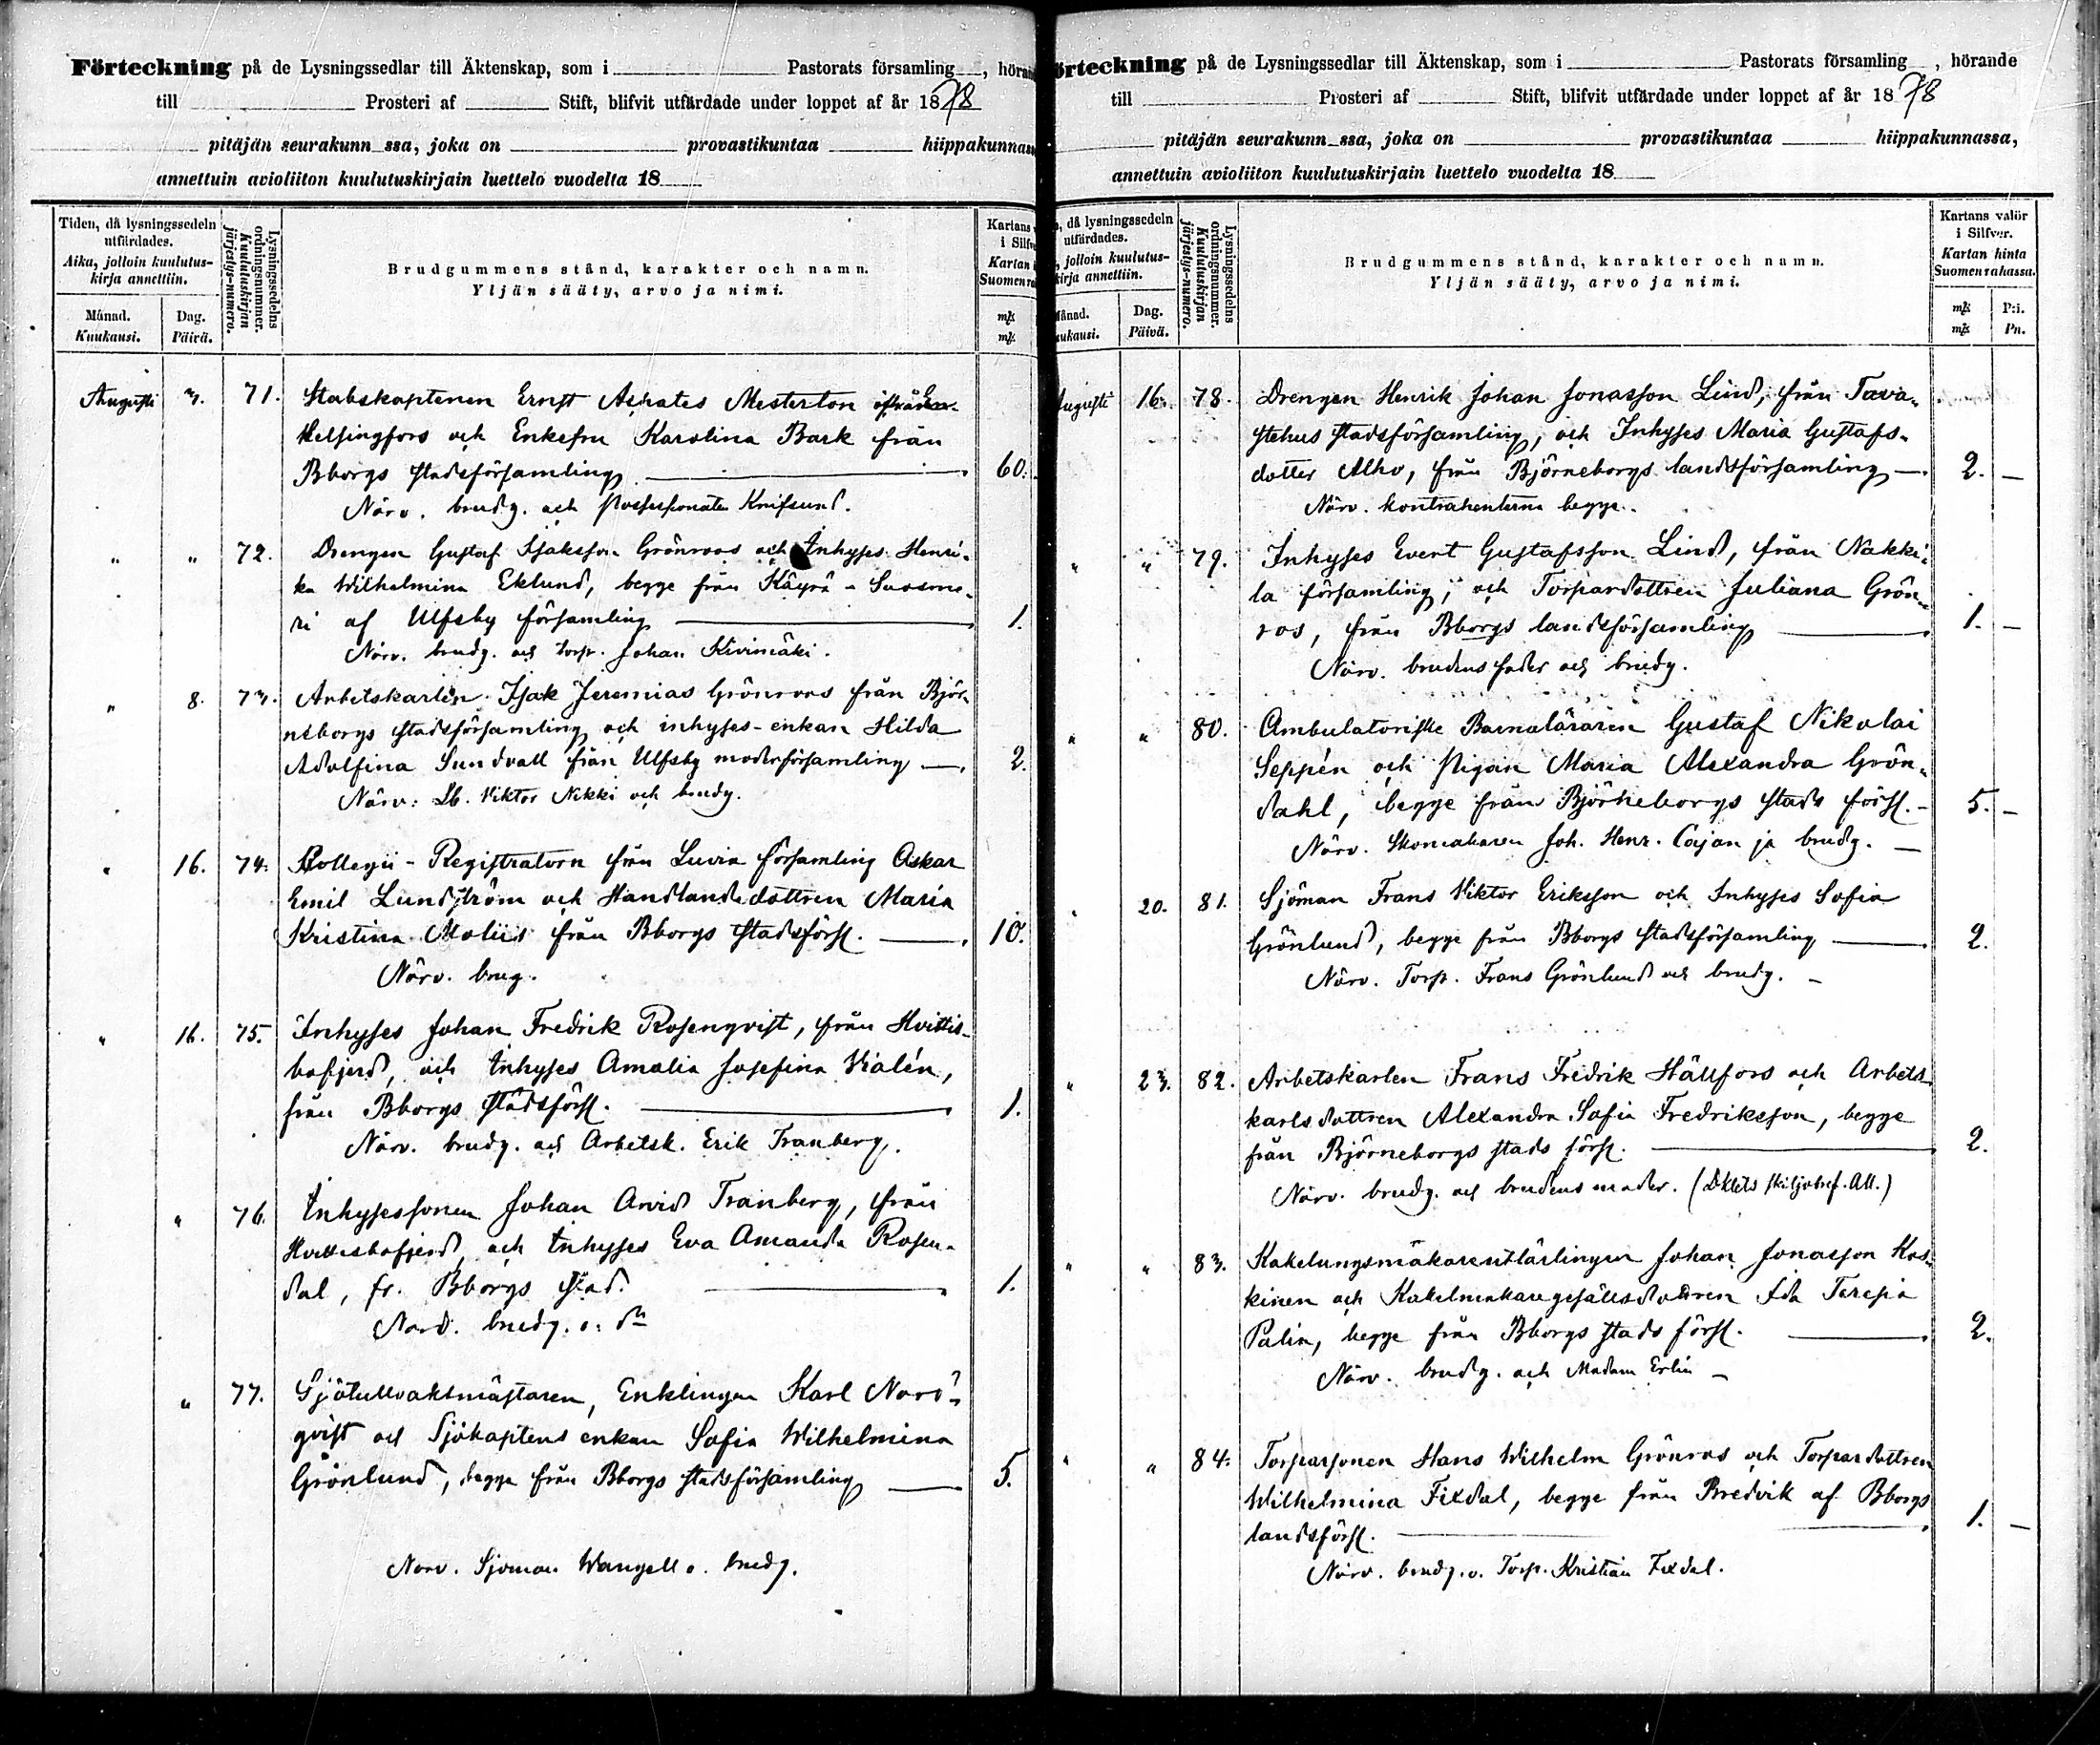 Förteckning på de Lysningssedlar till Äktenskap, som i Pastorats församling, höran
till Prosteri af Stift, blifvit utfärdade under loppet af år 1878
pitäjän seurakunn ssa, joka on provastikuntaa hiippakunnas
annettuin avioliiton kuulutuskirjain luettelo vuodelta 18
Tiden, då lysningssedeln utfärdades.
Aika, jolloin kuulutus-kirja annettiin.
Månad. Kuukausi.
Dag. Päivä.
Lysningssedelns ordningsnummer.
Kuulutuskirjan järjestys-numero.
Brudgummens stånd, karakter och namn.
Yljän sääty, arvo ja nimi.
Kartans v
i Silfve
Kartan
Suomen ra
mk
mk.
Augusti 3. 71. Stabskaptenen Ernst Achates Mesterton
Helsingfors och Enkefru Karolina Bark från
Bborgs stadsförsamling 60.
Närv. brudg. och Possessionaten Knifsund.
" " 72. Drengen Gustaf Isaksson Grönroos och Inhyses Henri-
ka Wilhelmina Eklund, begge från Käyrä - Suosme-
ri af Ulfsby församling 1.
Närv. brudg. och torp. Johan Kivimäki.
" 8. 73. Arbetskarlen Isak Jeremias Grönroos från Björ-
neborgs stadsförsamling och inhyses-enkan Hilda
Adolfina Sundvall från Ulfsby moderförsamling 2.
Närv: Lb. Viktor Nikki och brudg.
" 16. 74. Kollegii-Registratorn från Luvia församling Oskar
Emil Lundström och Handlandedottren Maria
Kristina Moliis från Bborgs stadsförsl. 10.
Närv. brug.
" 16. 75. Inhyses Johan Fredrik Rosenqvist, från Hvittis-
bofjerd, och Inhyses Amalia Josefina Vialén,
från Bborgs stadsförsl. 1.
Närv. brudg. och Arbetsk. Erik Tranberg.
" 76. Inhysessonen Johan Arvid Tranberg, från
Hvittisbofjerd och Inhyses Eva Amanda Rosen-
dal, fr. Bborgs stad. 1.
Närv. brudg. o: dn
" 77. Sjötullvaktmästaren, Enklingen Karl Nord-
qvist och Sjökaptens enkan Sofia Wilhelmina
Grönlund, begge från Bborgs stadsförsamling 5.
Närv. Sjöman Wangell o. brudg.
örteckning på de Lysningssedlar till Äktenskap, som i Pastorats församling, hörande
till Prosteri af Stift, blifvit utfärdade under loppet af år 1878
pitäjän seurakunn ssa, joka on provastikuntaa hiippakunnassa,
annettuin avioliiton kuulutuskirjain luettelo vuodelta 18
, då lysningssedeln utfärdades.
, jolloin kuulutus-kirja annettiin.
ånad. ukausi.
Dag. Päivä.
Lysningssedelns ordningsnummer.
Kuulutuskirjan järjestys-numero.
Brudgummens stånd, karakter och namn.
Yljän sääty, arvo ja nimi.
Kartans valör
i Silfver.
Kartan hinta
Suomen rahassa.
mk P:i.
mk Pn.
Augusti 16. 78. Drengen Henrik Johan Jonasson Lind, från Tava-
stehus stadsförsamling, och Inhyses Maria Gustafs-
dotter Alho, från Björneborgs landsförsamling 2. -
Närv. kontrahenterna begge.
" " 79. Inhyses Evert Gustafsson Lind, från Nakki-
la församling, och Torpardottren Juliana Grön-
ros, från Bborgs landsförsamling 1. -
Närv. brudens fader och brudg.
" " 80. Ambulatoriske Barnaläraren Gustaf Nikolai
Seppén och pigan Maria Alexandra Grön-
dahl, begge från Björneborgs stads försl. 5. -
Närv. Skomakaren Joh. Henr. Cajan ja brudg.
" 20. 81. Sjöman Frans Viktor Eriksson och Inhyses Sofia
Grönlund, begge från Bborgs stadsförsamling 2.
Närv. Torp. Frans Grönlund och brudg.
" 23. 82. Arbetskarlen Frans Fredrik Hällfors och Arbets-
karlsdottren Alexandra Sofia Fredriksson, begge
från Björneborgs stads försl. 2.
Närv. brudg. och brudens moder.
" " 83. Kakelungsmakarentlärlingen Johan Jonasson Kos-
kinen och Kakelmakaregesällsdottren Ida Taresia
Palin, begge från Bborgs stads försl. 2.
Närv. brudg. och Madam Erlin
" " 84. Torparsonen Hans Wilhelm Grönros och Torpardottren
Wilhelmina Fixdal, begge från Bredvik af Bborgs
landsförsl. 1. -
Närv. brudg. o. Torp. Kristian Fixdal.